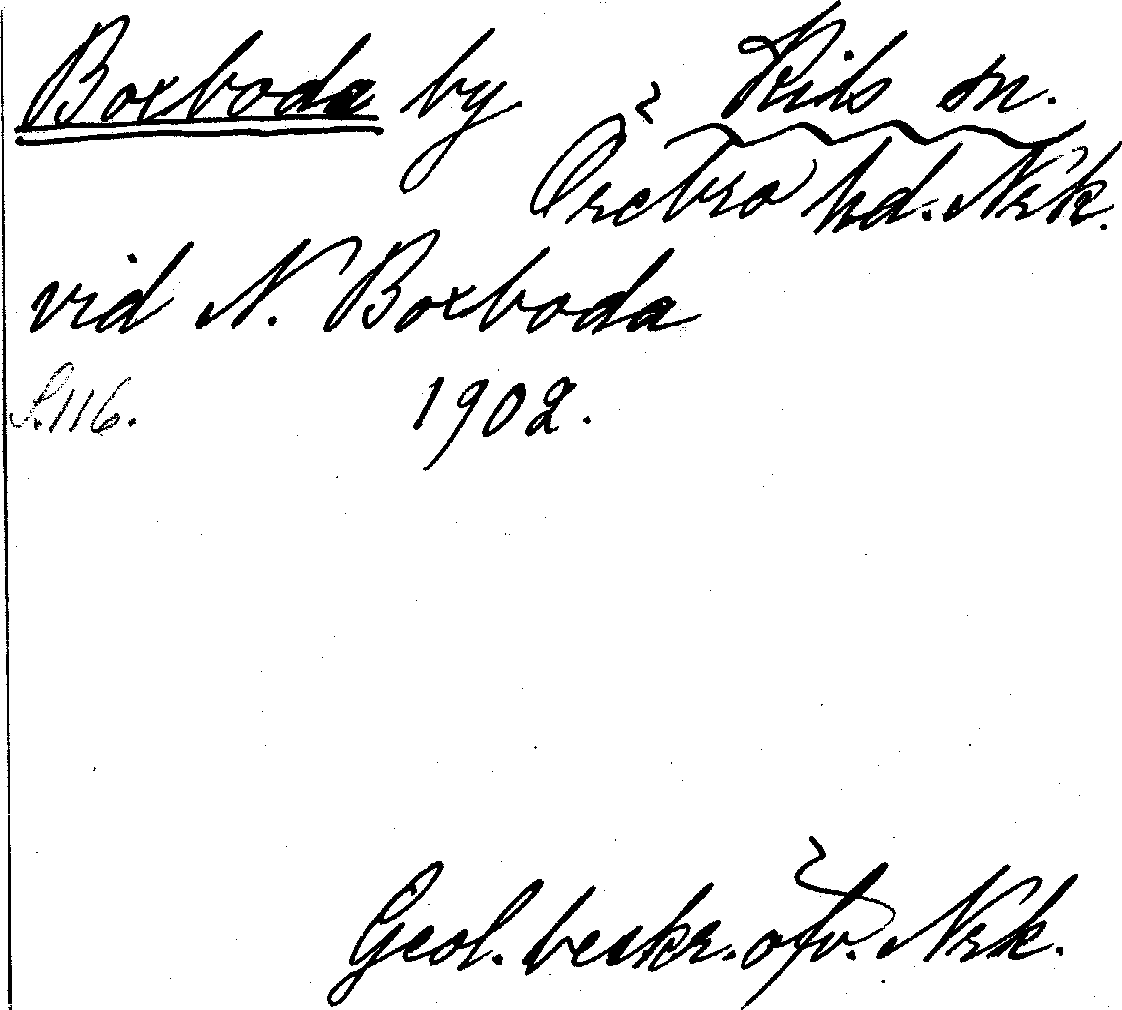 Boxboda by Kils sn.
Örebro hd. Nrk.
vid N. Boxboda
S. 116. 1902.
Geol. beskr. öfv. Nrk.